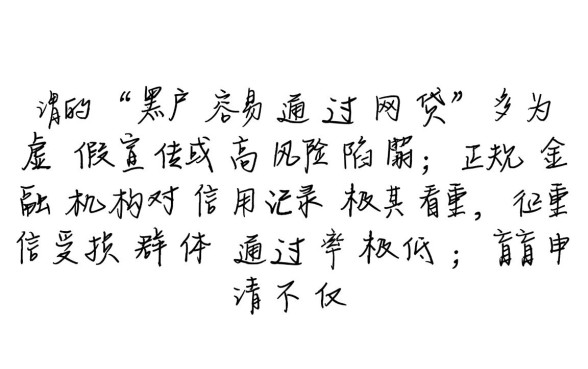 谓的“黑户容易通过网贷”多为
虚假宣传或高风险陷阱；正规金
融机构对信用记录极其看重，征重
信受损群体通过率极低；盲盲申
请不仅